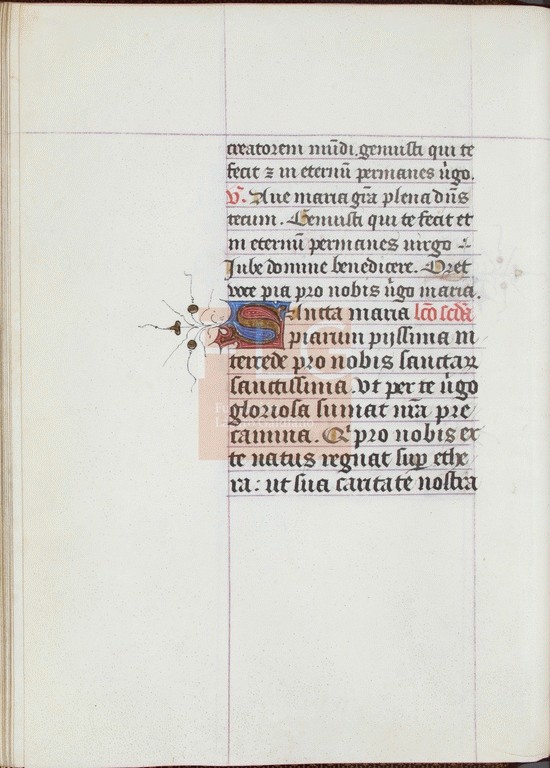 creatorem mūdi. genuisti qui te
fecit ⁊ in eternū permanes ũgo.
V. Aue maria grã plena dñs
tecum. Genuisti qui te fecit et
in eternū permanes uirgo
Iube domine benedicere. Oret
voce pia pro nobis ũgo maria.
Sancta maria lcõ scdã
piarum pijssima in
tercede pro nobis sanctaꝝ
sanctissima. Vt per te ũgo
gloriosa sumat nrã pre
camina. Qi pro nobis ex
te natus regnat sup ethe
ra: ut sua caritate nostra